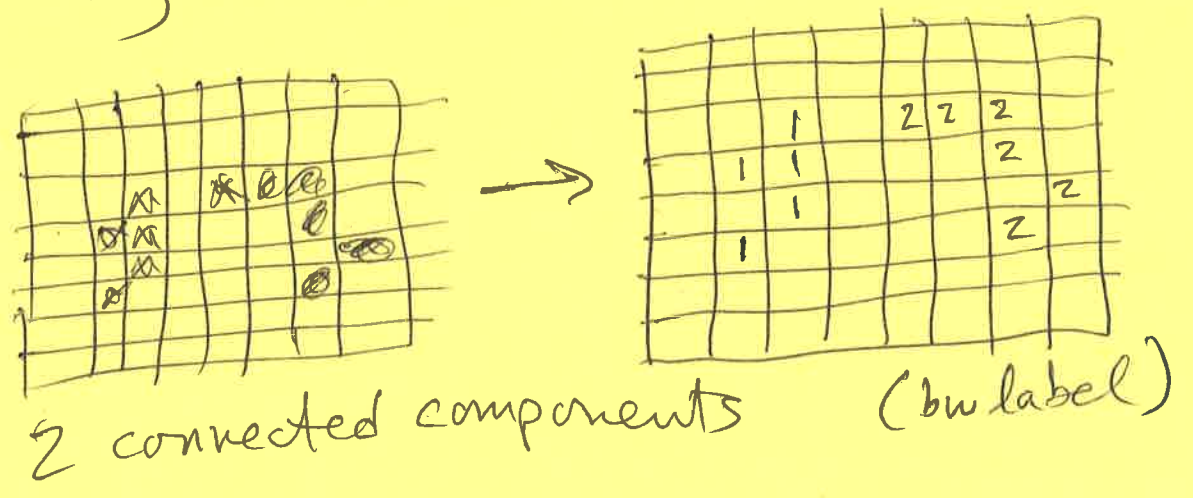 1 2 2 2
1 1 2
1 2
1 2
2 connected components
(bwlabel)